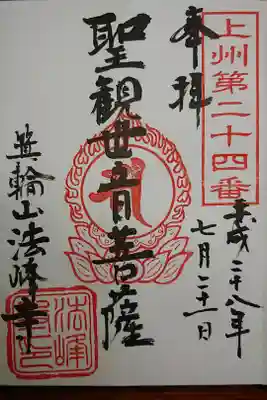 上州第二十四番
奉拝
平成二十八年
七月二十一日
聖観世音菩薩
箕輪山法峰寺
法峰